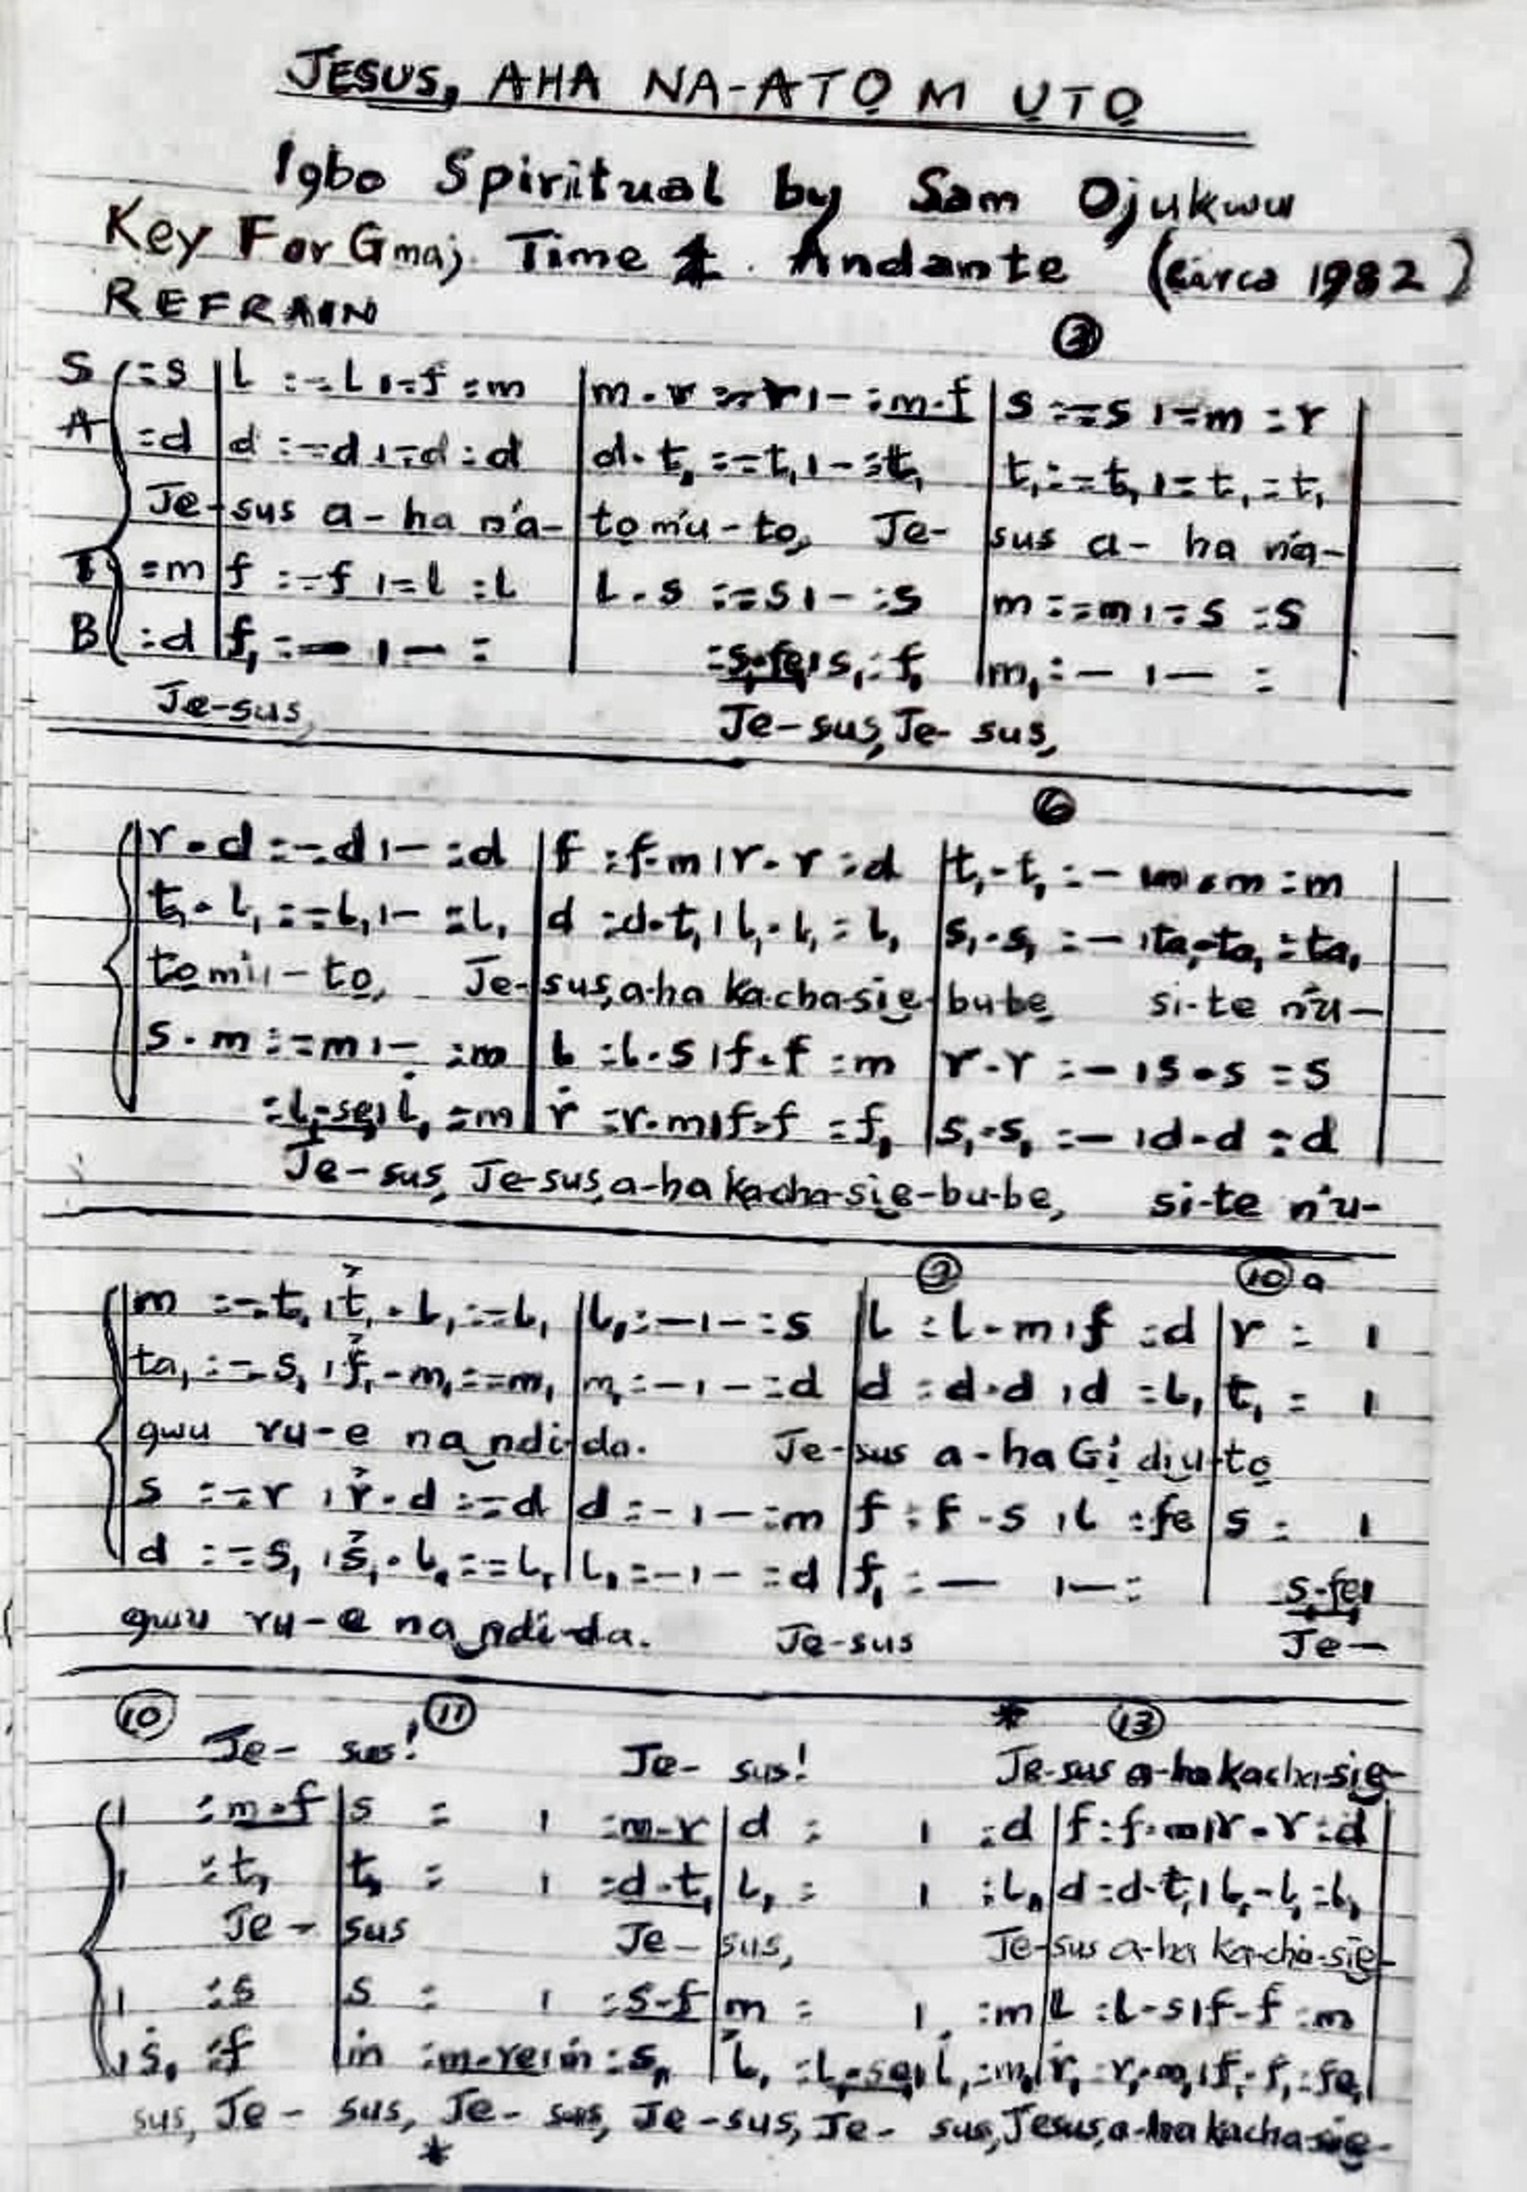 JESUS, AHA NA-ATỌ M ỤTỌ
Igbo Spiritual by Sam Ojukwu
Key F or G maj. Time Andante (Circa 1982)
REFRAIN
③
S :s | l :-.l | -.f :m | m.r :-.r | - :m.f | s :-.s | -.m :r
A :d | d :-.d | -.d :d | d.t, :-.t, | - :t, | t, :-.t, | -.t, :t,
Je-sus a-ha n'a-tọ m'ụ-tọ, Je-sus a-ha n'a-
T :m | f :-.f | -.l :l | l.s :-.s | - :s | m :-.m | -.s :s
B :d | f, :- | - : :s,.fe, | s, :f, | m, :- | - :
Je-sus, Je-sus, Je-sus,
⑥
r.d :-.d | - :d | f :f.m | r.r :d | t,.t, :- | m.m :m
t,.l, :-.l, | - :l, | d :d.t, | l,.l, :l, | s,.s, :- | ta,.ta, :ta,
tọ m'ụ-tọ, Je-sus, a-ha ka-cha-sie-bu-be si-te n'u-
s.m :-.m | - :m | l :l.s | f.f :m | r.r :- | s.s :s
:l,.se, | l, :m | r :r.m | f.f :f, | s,.s, :- | d.d :d
Je-sus, Je-sus, a-ha ka-cha-sie-bu-be, si-te n'u-
⑨ ⑩a
m :-.t, | t,.l, :-.l, | l, :- | - :s | l :l.m | f :d | r : |
ta, :-.s, | f,.m, :-.m, | m, :- | - :d | d :d.d | d :l, | t, : |
gwu ru-e na ndi-da. Je-sus a-ha Gi dị ụ-tọ
s :-.r | r.d :-.d | d :- | - :m | f :f.s | l :fe | s : |
d :-.s, | s,.l, :-.l, | l, :- | - :d | f, :- | - : s,.fe, |
gwu ru-e na ndi-da. Je-sus Je-
⑩ ⑪ * ⑬
Je-sus! Je-sus! Je-sus a-ha kacha-sie-
| :m.f | s : | :m.r | d : | :d | f :f.m | r.r :d
| :t, | t, : | :d.t, | l, : | :l, | d :d.t, | l,.l, :l,
Je-sus Je-sus, Je-sus a-ha ka-cha-sie-
| :s | s : | :s.f | m : | :m | l :l.s | f.f :m
| s, :f | m :m.re | m :s, | l, :l,.se, | l, :m, | r, :r,.m, | f,.f, :fe,
sus, Je-sus, Je-sus, Je-sus, Je-sus, Jesus, a-ha kacha-sie-
*